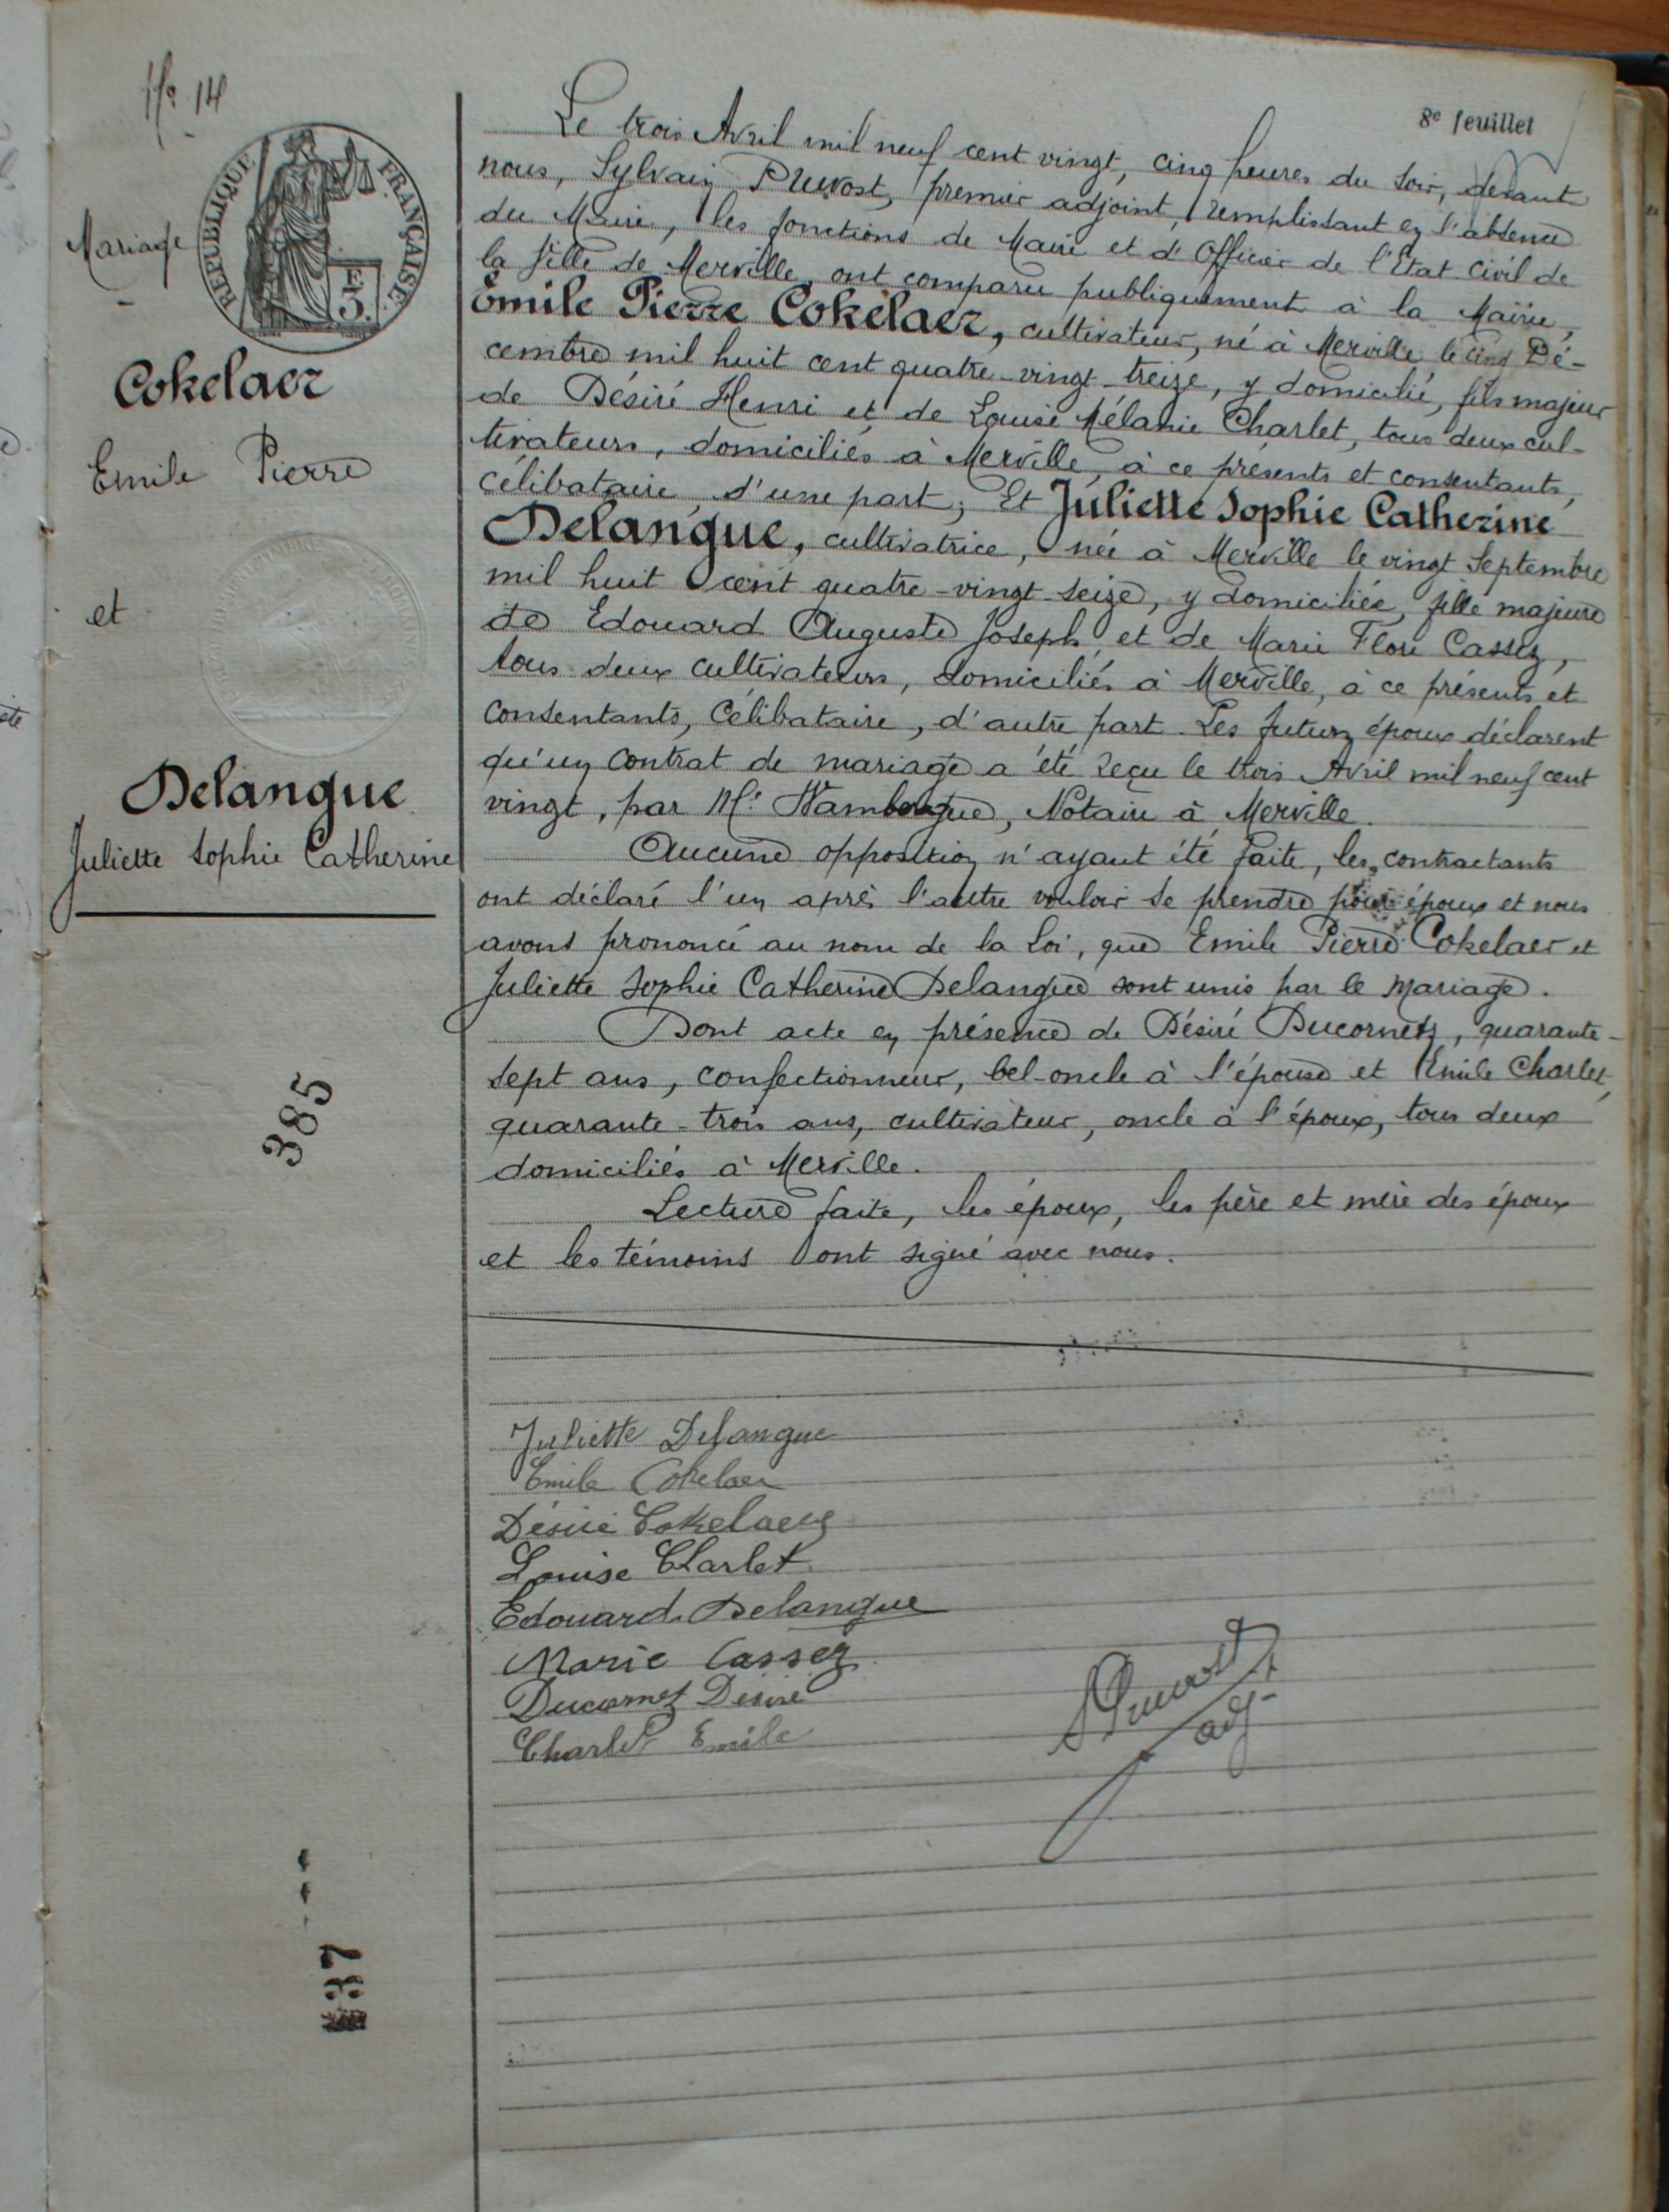 8e feuillet
No 14
Mariage
RÉPUBLIQUE FRANÇAISE
3
Cokelaer
Emile Pierre
et
Delangue
Juliette Sophie Catherine
385
Le trois Avril mil neuf cent vingt, cinq heures du soir, devant
nous, Sylvain Pruvost, premier adjoint, remplissant en l'absence
du Maire, les fonctions de Maire et d'Officier de l'Etat Civil de
la Ville de Merville, ont comparu publiquement à la Mairie,
Emile Pierre Cokelaer, cultivateur, né à Merville le cinq Dé-
cembre mil huit cent quatre-vingt-treize, y domicilié, fils majeur
de Désiré Henri et de Louise Mélanie Charlet, tous deux cul-
tivateurs, domiciliés à Merville, à ce présents et consentants,
célibataire d'une part; Et Juliette Sophie Catherine
Delangue, cultivatrice, née à Merville le vingt Septembre
mil huit cent quatre-vingt-seize, y domiciliée, fille majeure
de Edouard Auguste Joseph et de Marie Flore Cassez,
tous deux cultivateurs, domiciliés à Merville, à ce présents et
consentants, Célibataire, d'autre part. Les futurs époux déclarent
qu'un contrat de mariage a été reçu le trois Avril mil neuf cent
vingt, par Me Wambergue, Notaire à Merville.
Aucune opposition n'ayant été faite, les contractants
ont déclaré l'un après l'autre vouloir se prendre pour époux et nous
avons prononcé au nom de la Loi, que Emile Pierre Cokelaer et
Juliette Sophie Catherine Delangue sont unis par le mariage.
Dont acte en présence de Désiré Ducornetz, quarante-
sept ans, confectionneur, bel-oncle à l'épouse et Emile Charlet,
quarante-trois ans, cultivateur, oncle à l'époux, tous deux
domiciliés à Merville.
Lecture faite, les époux, les père et mère des époux
et les témoins ont signé avec nous.
Juliette Delangue
Emile Cokelaer
Désiré Cokelaer
Louise Charlet
Edouard Delangue
Marie Cassez
Ducornetz Désiré
Charlet Emile
S Pruvost
adj
37